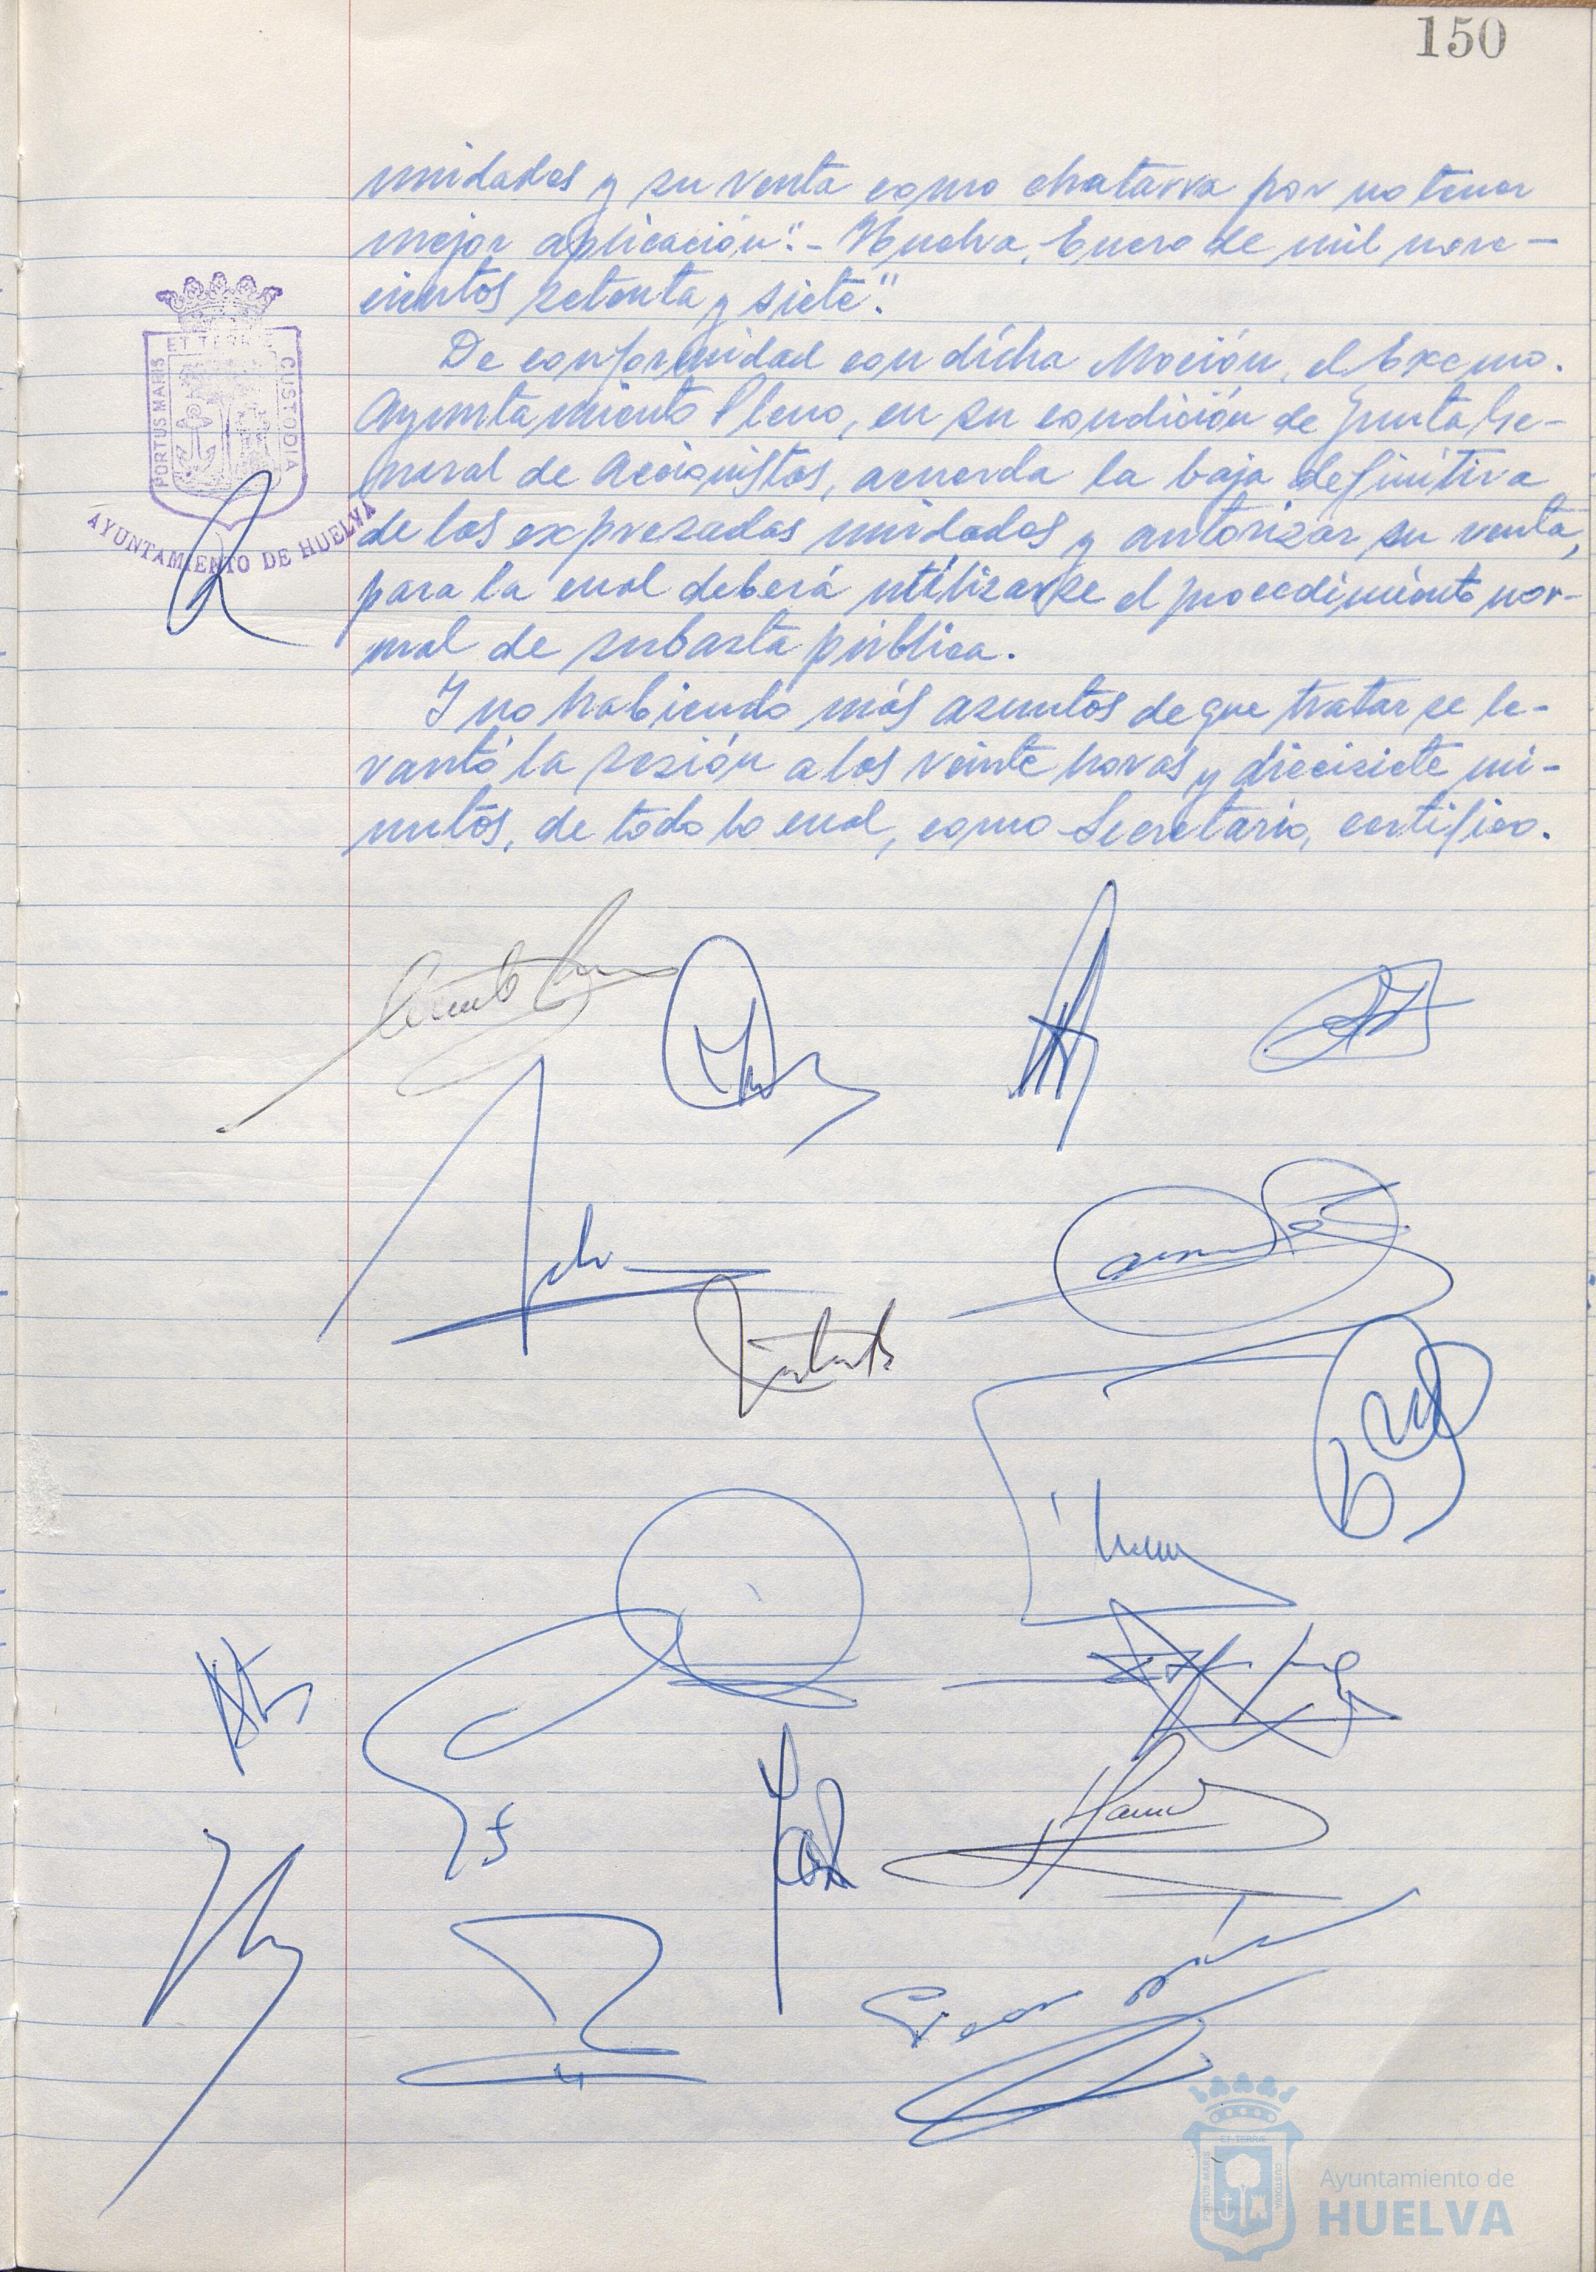 150
unidades y su venta como chatarra por no tener
mejor aplicación".- Huelva, Enero de mil nove-
cientos setenta y siete".
De conformidad con dicha Moción, el Excmo.
Ayuntamiento Pleno, en su condición de Junta Ge-
neral de Accionistas, acuerda la baja definitiva
de las expresadas unidades y autorizar su venta,
para la cual deberá utilizarse el procedimiento nor-
mal de subasta pública.
Y no habiendo más asuntos de que tratar se le-
vantó la sesión a las veinte horas y diecisiete mi-
nutos, de todo lo cual, como Secretario, certifico.
PORTUS MARIS
ET TERRÆ
CUSTODIA
AYUNTAMIENTO DE HUELVA
PORTUS MARIS
ET TERRÆ
CUSTODIA
Ayuntamiento de
HUELVA